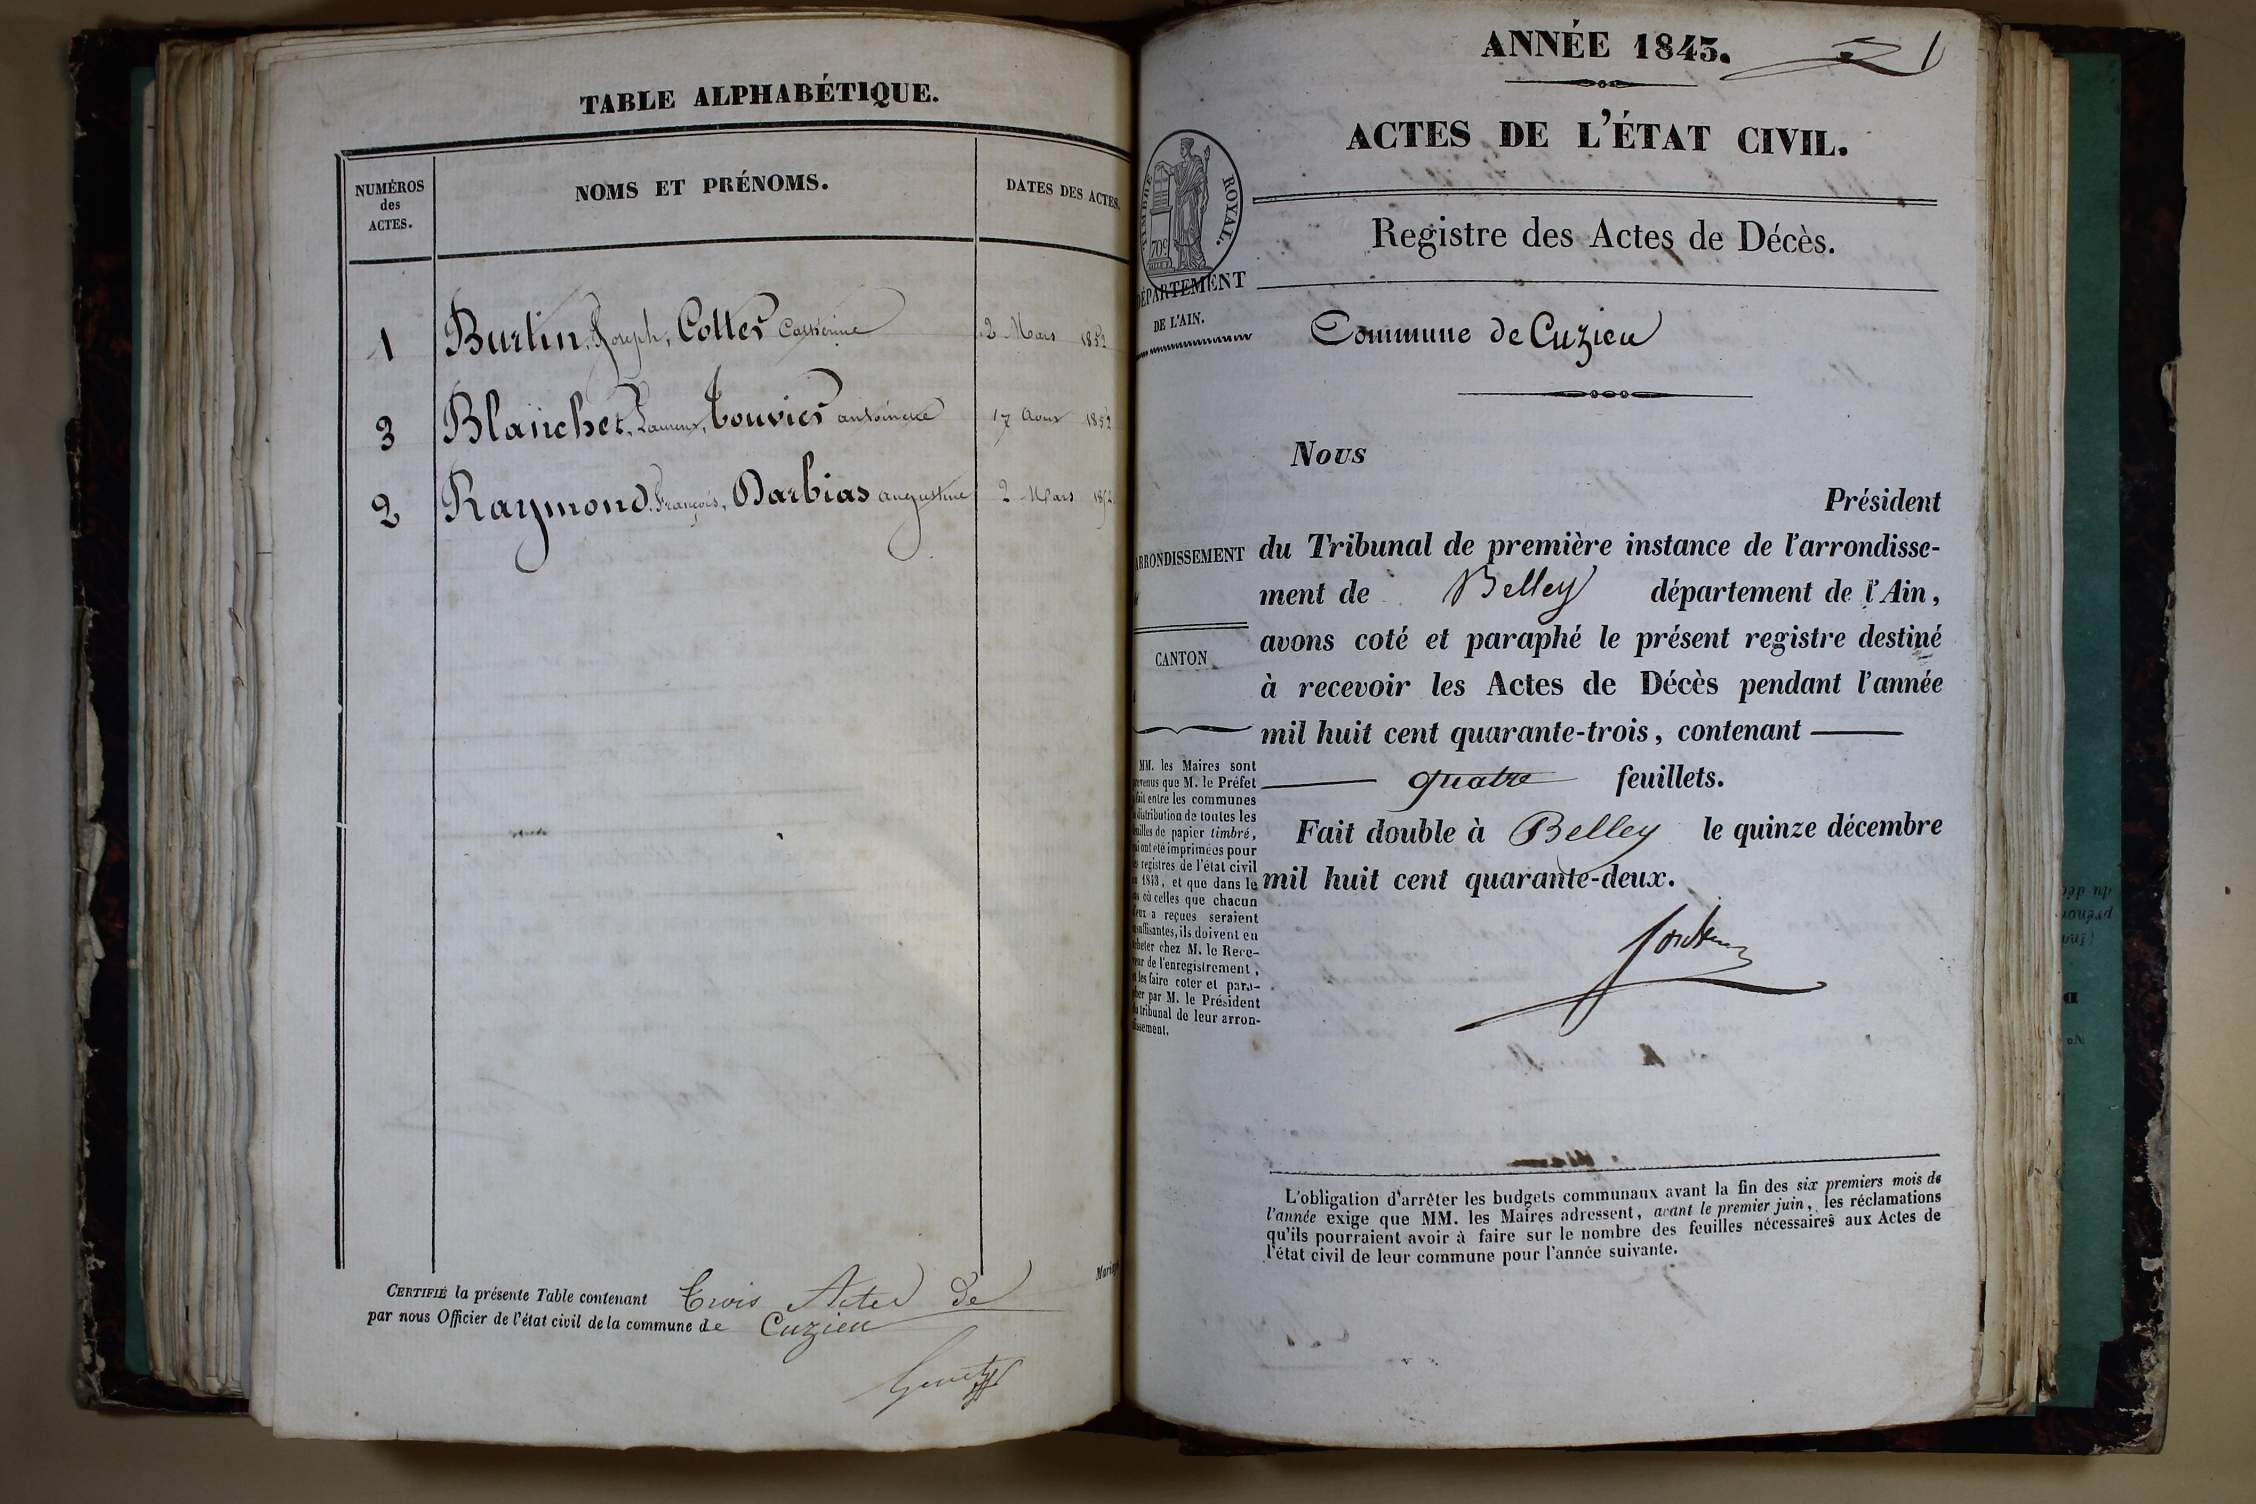 TABLE ALPHABÉTIQUE.
NUMÉROS
des
ACTES.
NOMS ET PRÉNOMS.
DATES DES ACTES.
1 Burlin, Joseph, Collet Catherine 2 Mars 1852
3 Blanchet, Laurent, Touvier antoinette 17 Aout 1852
2 Raymond, François, Darbias augustine 2 Mars 1852
CERTIFIÉ la présente Table contenant Trois Actes de
par nous Officier de l'état civil de la commune de Cuzieu
ANNÉE 1843.
1
ACTES DE L'ÉTAT CIVIL.
TIMBRE ROYAL.
70c.
Registre des Actes de Décès.
DÉPARTEMENT
DE L'AIN.
Commune de Cuzieu
Nous
Président
ARRONDISSEMENT
du Tribunal de première instance de l'arrondisse-
ment de Belley département de l'Ain,
avons coté et paraphé le présent registre destiné
CANTON
à recevoir les Actes de Décès pendant l'année
mil huit cent quarante-trois, contenant
quatre feuillets.
Fait double à Belley le quinze décembre
mil huit cent quarante-deux.
MM. les Maires sont
prévenus que M. le Préfet
fait entre les communes
distribution de toutes les
feuilles de papier timbré,
qui ont été imprimées pour
les registres de l'état civil
1843, et que dans le
cas où celles que chacun
d'eux a reçues seraient
insuffisantes, ils doivent en
acheter chez M. le Rece-
veur de l'enregistrement,
les faire coter et para-
pher par M. le Président
du tribunal de leur arron-
dissement.
L'obligation d'arrêter les budgets communaux avant la fin des six premiers mois de
l'année exige que MM. les Maires adressent, avant le premier juin, les réclamations
qu'ils pourraient avoir à faire sur le nombre des feuilles nécessaires aux Actes de
l'état civil de leur commune pour l'année suivante.